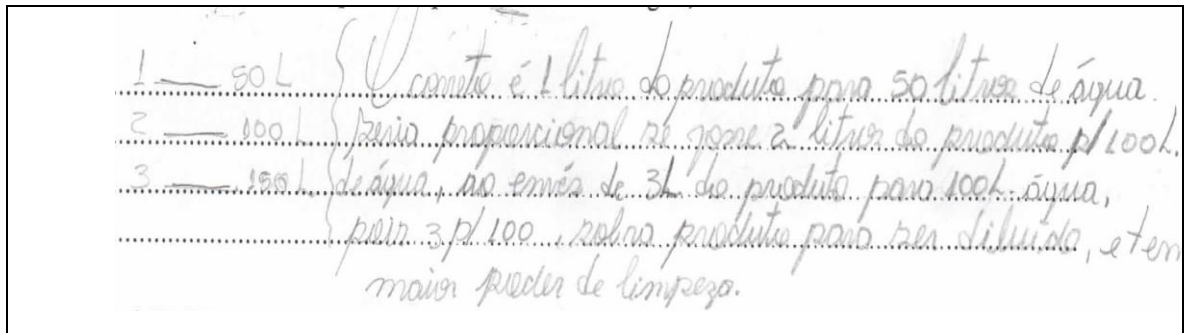 1 — 50 L { O correto é 1 litro do produto para 50 litros de água.
2 — 100 L { seria proporcional se fosse 2 litros do produto p/ 100L.
3 — 150 L { de água, ao envés de 3L do produto para 100L água,
{ pois 3 p/ 100, sobra produto para ser diluído, e tem
maior poder de limpeza.